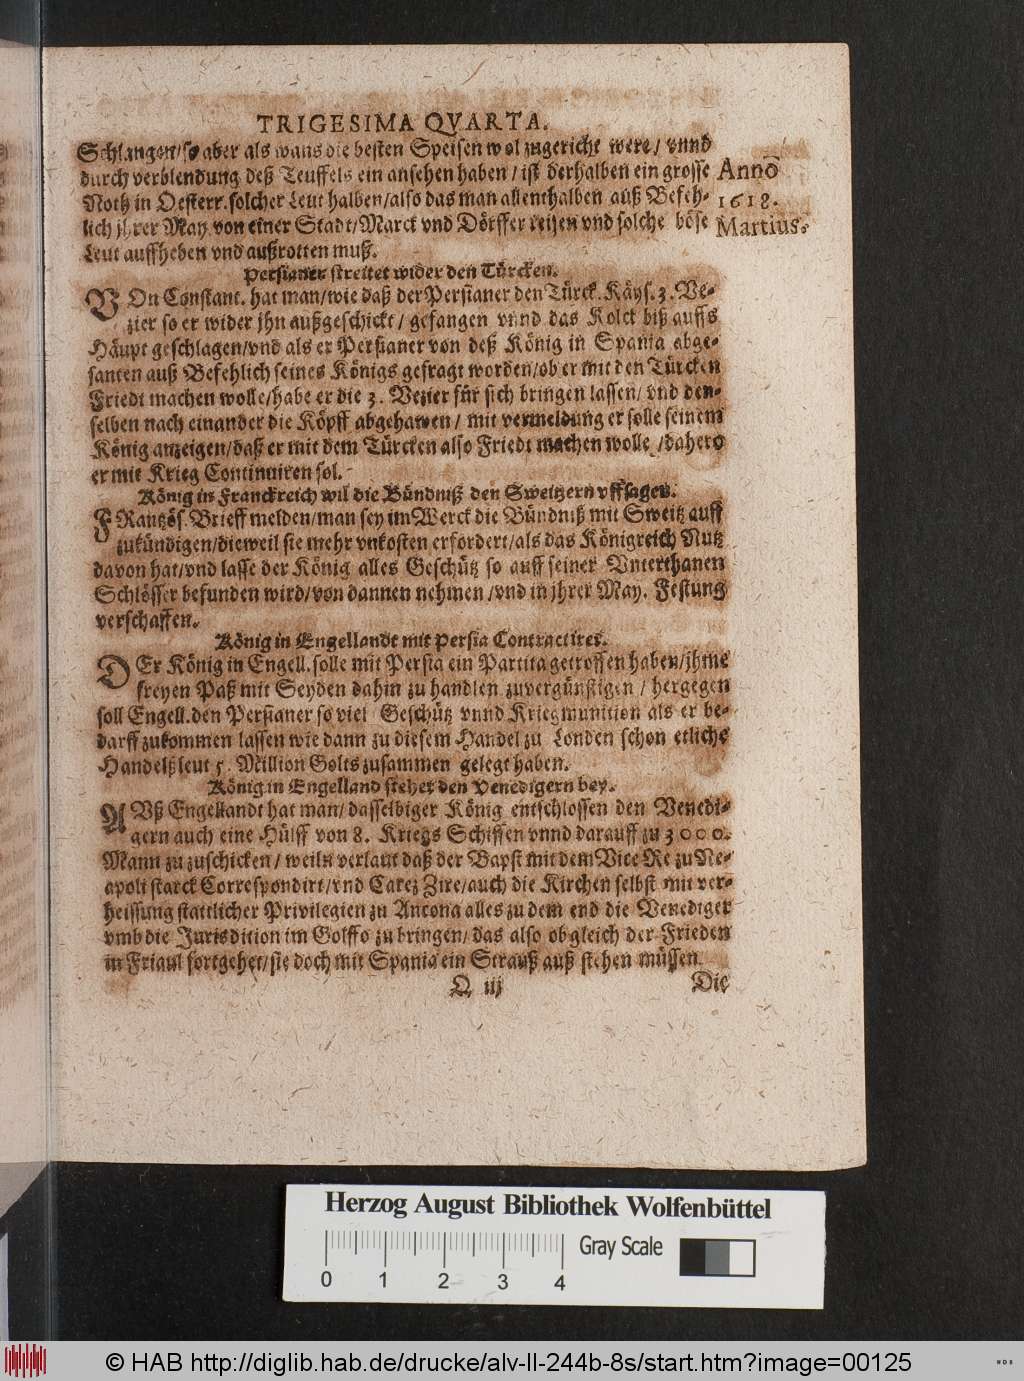 TRIGESIMA QVARTA.
Schlangen/so aber als wans die besten Speisen wol zugericht were/ vnnd
durch verblendung deß Teuffels ein ansehen haben / ist derhalben ein grosse
Anno
Noth in Oesterr. solcher Leut halben/also das man allenthalben auß Befeh-
1618.
lich jhrer May. von einer Stadt/Marckt vnd Dörffer reisen vnd solche böse
Martius.
Leut auffheben vnd außrotten muß.
Persianer streitet wider den Türcken.
VOn Constant. hat man/wie daß der Persianer den Türck. Käys. 3. Ve-
zier so er wider jhn außgeschickt / gefangen vnnd das Kolck biß auffs
Häupt geschlagen/vnd als er Persianer von deß König in Spania abge-
santen auß Befehlich seines Königs gefragt worden/ob er mit den Türcken
Friedt machen wolle/habe er die 3. Vezier für sich bringen lassen/ vnd den-
selben nach einander die Köpff abgehawen / mit vermeldung er solle seinem
König anzeigen/daß er mit dem Türcken also Friedt machen wolle /dahero
er mit Krieg Continuiren sol.
König in Franckreich wil die Bündniß den Sweitzern vffsagen.
FRantzös. Brieff melden/man sey im Werck die Bündniß mit Sweitz auff
zukündigen/dieweil sie mehr vnkosten erfordert/als das Königreich Nutz
davon hat/vnd lasse der König alles Geschütz so auff seiner Vnterthanen
Schlösser befunden wird/von dannen nehmen /vnd in jhrer May. Festung
verschaffen.
König in Engellandt mit Persia Contractiret.
DEr König in Engell. solle mit Persia ein Partita getroffen haben/jhme
freyen Paß mit Seyden dahin zu handlen zuvergünstigen / hergegen
soll Engell. den Persianer so viel Geschütz vnnd Kriegmunition als er be-
darff zukommen lassen wie dann zu diesem Handel zu Londen schon etliche
Handelßleut 5. Million Golts zusammen gelegt haben.
König in Engelland stehet den Venedigern bey.
AVß Engellandt hat man/ dasselbiger König entschlossen den Venedi-
gern auch eine Hülff von 8. Kriegs Schiffen vnnd darauff zu 3000.
Mann zu zuschicken / weiln verlaut daß der Bapst mit dem Vice Re zu Ne-
apoli starck Correspondirt/vnd Carez Zire/auch die Kirchen selbst mit ver-
heissung stattlicher Privilegien zu Ancona alles zu dem end die Venediger
vmb die Jurisdition im Golffo zu bringen/ das also ob gleich der Frieden
in Friaul fortgehet/sie doch mit Spania ein Strauß auß stehen müssen.
Q iij
Die
Herzog August Bibliothek Wolfenbüttel
Gray Scale
0 1 2 3 4
© HAB http://diglib.hab.de/drucke/alv-ll-244b-8s/start.htm?image=00125